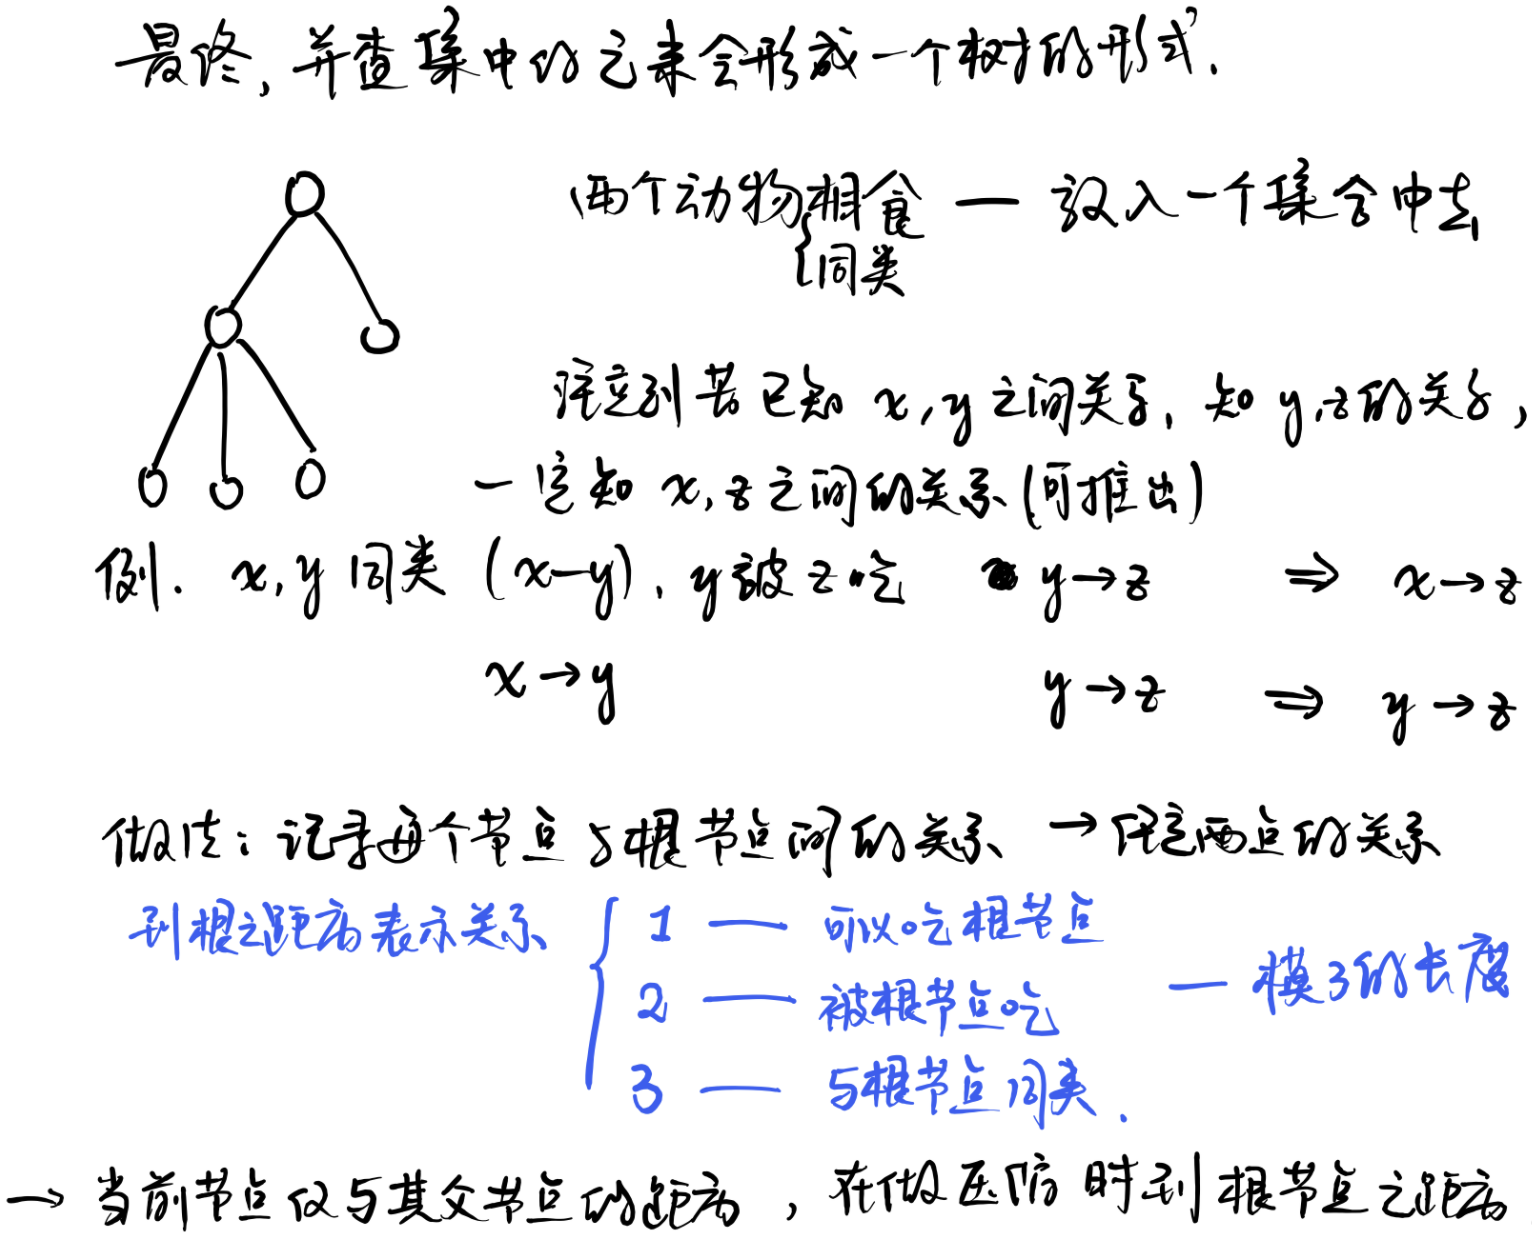 最终, 并查集中的元素会形成一个树的形式.
两个动物相食 — 放入一个集合中去
{同类
注意到若已知 x,y 之间关系, 知 y,z的关系,
一定知 x,z 之间的关系(可推出)
例. x,y 同类 (x—y), y被z吃 y→z ⇒ x→z
x→y y→z ⇒ y→z
做法: 记录每个节点与根节点间的关系 →任意两点的关系
到根之距离表示关系 { 1 — 可以吃根节点
2 — 被根节点吃 — 模3的长度
3 — 与根节点同类.
→ 当前节点仅与其父节点的距离, 在做压缩时到根节点之距离